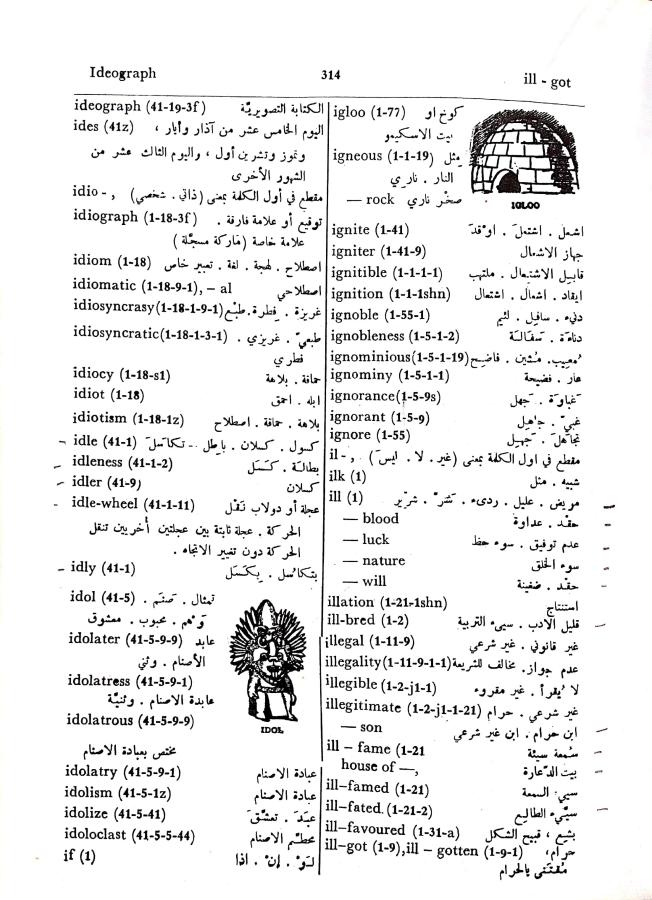 Ideograph 314 ill - got
ideograph (41-19-3f) الكتابة التصويريّة
ides (41z) اليوم الخامس عشر من آذار وأيار ،
وتموز وتشرين أول ، واليوم الثالث عشر من
الشهور الأخرى
idio - , مقطع في أول الكلمة بمعنى (ذاتي . شخصي)
idiograph (1-18-3f) توقيع أو علامة فارقة .
علامة خاصة (ماركة مسجّلة)
idiom (1-18) اصطلاح . لهجة . لغة . تعبير خاص
idiomatic (1-18-9-1), – al اصطلاحي
idiosyncrasy(1-18-1-9-1) غريزة . فطرة. طبْع
idiosyncratic(1-18-1-3-1) طبعيّ . غريزي .
فطري
idiocy (1-18-s1) حماقة . بلاهة
idiot (1-18) ابله . احمق
idiotism (1-18-1z) بلاهة . حماقة . اصطلاح
idle (41-1) كسول . كسلان . باطل – تكاسَلَ
idleness (41-1-2) بطالة . كسَل
idler (41-9) كسلان
idle-wheel (41-1-11) عجلة أو دولاب نقْل
الحركة . عجلة ثابتة بين عجلتين أخريين تنقل
الحركة دون تغيير الاتجاه .
idly (41-1) بتكاسُل . بكسَل
idol (41-5) تمثال . صنَم .
وَهم . محبوب . معشوق
idolater (41-5-9-9) عابد
الأصنام . وثني
idolatress (41-5-9-1)
عابدة الاصنام . وثنيّة
idolatrous (41-5-9-9)
مختص بعبادة الاصنام
IDOL
idolatry (41-5-9-1) عبادة الاصنام
idolism (41-5-1z) عبادة الاصنام
idolize (41-5-41) عبَدَ . تعشّقَ
idoloclast (41-5-5-44) محطّم الاصنام
if (1) لوْ . إنْ . اذا
igloo (1-77) كوخ او
بيت الاسكيمو
igneous (1-1-19) مثل
النار . ناري
— rock صخْر ناري
IGLOO
ignite (1-41) اشعل . اشتعلَ . اوقدَ
igniter (1-41-9) جهاز الاشعال
ignitible (1-1-1-1) قابل الاشتعال . ملتهب
ignition (1-1-1shn) ايقاد . اشعال . اشتعال
ignoble (1-55-1) دنيء . سافل . لئيم
ignobleness (1-5-1-2) دناءة . سفالة
ignominious(1-5-1-19) مُعيب. مُشين . فاضح
ignominy (1-5-1-1) عار . فضيحة
ignorance(1-5-9s) غباوَة . جهل
ignorant (1-5-9) غبيّ . جاهل
ignore (1-55) تجاهَلَ . جهِلَ
il - , مقطع في اول الكلمة بمعنى (غير . لا . ليسَ)
ilk (1) شبيه . مثل
ill (1) مريض . عليل . رديء . شرّ . شرّير
— blood حقد . عداوة
— luck عدم توفيق . سوء حظ
— nature سوء الخلق
— will حقد . ضغينة
illation (1-21-1shn) استنتاج
ill-bred (1-2) قليل الادب . سيىء التربية
illegal (1-11-9) غير قانوني . غير شرعي
illegality(1-11-9-1-1) عدم جواز. مخالف للشريعة
illegible (1-2-j1-1) لا يُقرأ . غير مقروء
illegitimate (1-2-j1-1-21) غير شرعي . حرام
— son ابن حرام . ابن غير شرعي
ill – fame (1-21 سُمعة سيئة
house of —, بيت الدّعارة
ill-famed (1-21) سيىء السمعة
ill-fated (1-21-2) سيّىء الطالع
ill-favoured (1-31-a) بشع ، قبيح الشكل
ill-got (1-9), ill – gotten (1-9-1) حرام،
مُقتنى بالحرام